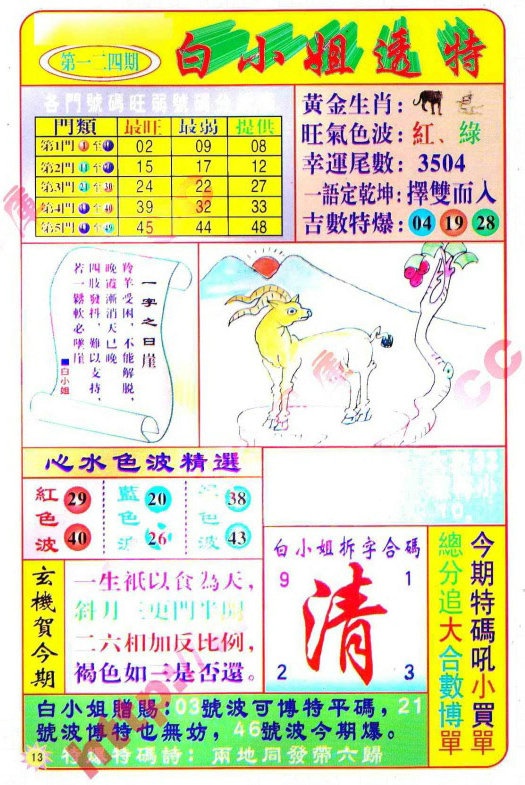 第一二四期
白小姐透特
各門號碼旺弱號
門類 最旺 最弱 提供
第1門 至 02 09 08
第2門 至 15 17 12
第3門 至 24 22 27
第4門 至 39 32 33
第5門 至 45 44 48
黃金生肖:
旺氣色波:紅、綠
幸運尾數: 3504
一語定乾坤:擇雙而入
吉數特爆: 04 19 28
一字之曰崖
羚羊受困,不能解脫,
晚霞漸消天已晚
四肢發抖,難以支持,
若一鬆軟必嗲崖
■白小姐
心水色波精選
紅色波 29 40
藍色 20 26
色波 38 43
玄機賀今期
一生祇以食為天,
斜月三更門半開
二六相加反比例,
褐色如三是否還。
白小姐拆字合碼
9 1
清
2 3
今期特碼吼小買單
總分追大合數博單
白小姐贈賜:03號波可博特平碼,21
號波博特也無妨,46號波今期爆。
特碼詩: 兩地同發帶六歸
13
http://